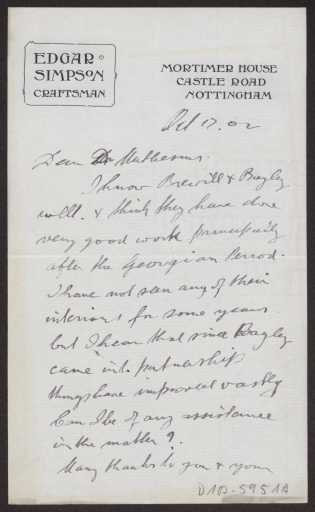 EDGAR
SIMPSON
CRAFTSMAN
MORTIMER HOUSE
CASTLE ROAD
NOTTINGHAM
Oct 17. 02
Dear Dr Muthesius.
I know Brewill & Bayley
well. & think they have done
very good work principally
after the Georgian Period.
I have not seen any of their
interiors for some years
but I hear that since Bayley
came into partnership
things have improved vastly
Can I be of any assistance
in the matter?
Many thanks to you & your
D102-5951A